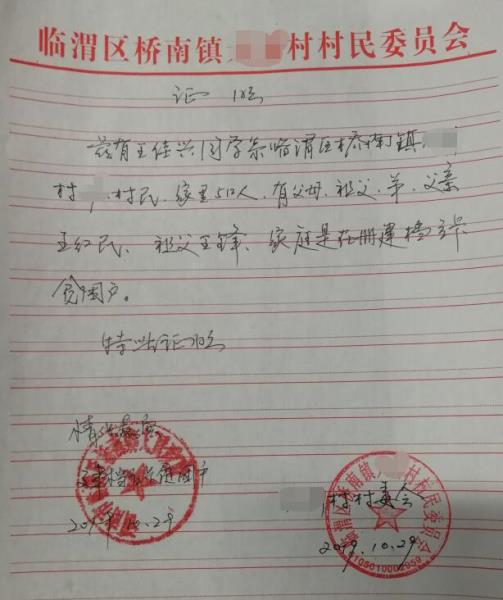 临渭区桥南镇 村村民委员会
证 明
兹有王佳兴同学系临渭区桥南镇
村 村民、家里5口人、有父母、祖父、弟、父亲
王红民、祖父王锋、家庭是在册建档立卡
贫困户。
特此证明
情况属实
建档 贫困户
2019.10.29
村村委会
2019.10.29